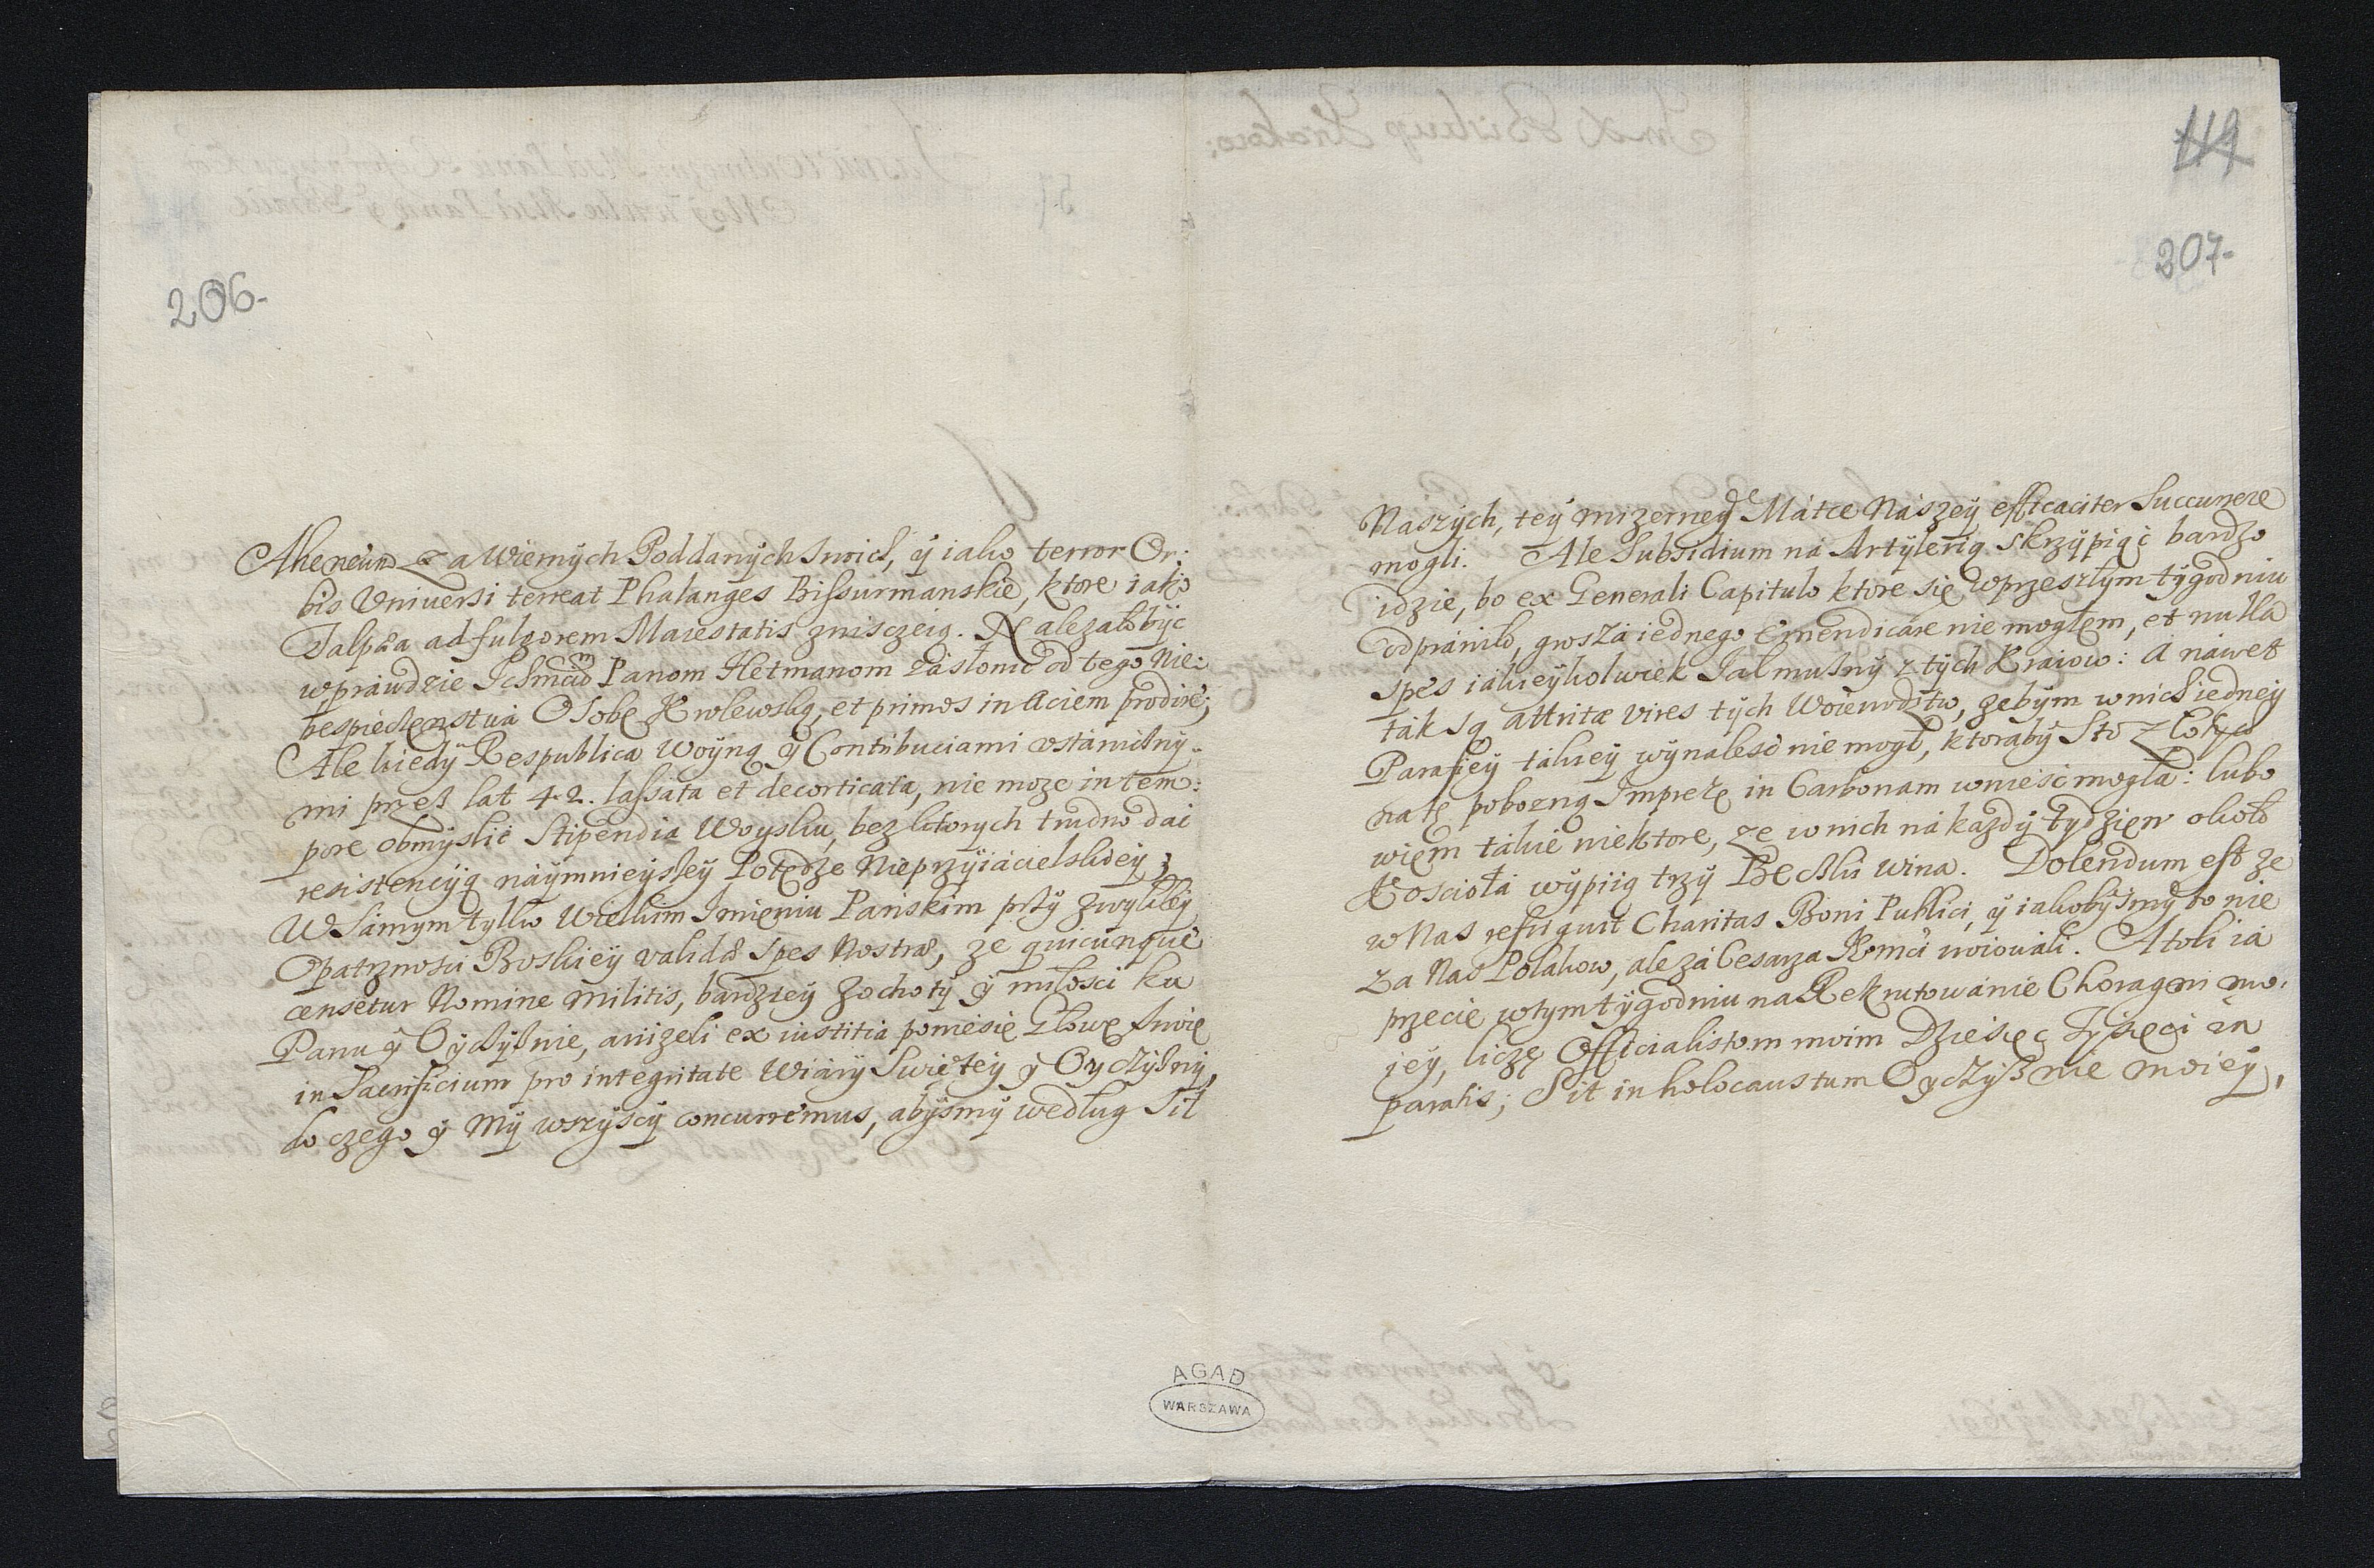 206-
Aheneum za wiernych Poddanych swoich, ÿ iako terror Or:
bis Vniuersi terreat Phalanges Bissurmanskie, ktore iako
Talpæ ad fulgorem Maiestatis zniszczeią. Należało być
wprawdzie Ichmciom Panom Hetmanom zasłonić od tego Nie:
bespieczenstwa Osobę Krolewską, et primos in Aciem prodire;
Ale kiedÿ Respublica Woÿną ÿ Contribuciami vstawiczny:
mi przez lat 42. lassata et decorticata, nie moze in tem:
pore obmÿslić Stipendia Woysku, bez ktorych trudno dać
resistencÿą naÿmnieÿszeÿ Potędze Nieprzÿiacielskieÿ;
W samym tylko wielkim Imieniu Pańskim przÿ zwÿkłeÿ
Opatrznosci Boskieÿ valida spes Nostra, ze quicunque
censetur Nomine militis, bardzieÿ z ochotÿ ÿ miłosci ku
Panu ÿ Oÿczÿznie, aniżeli ex iustitia poniesie głowę swoię
in Sacrificium pro integritate Wiarÿ Swiętey ÿ Oyczÿznÿ,
do czego ÿ Mÿ wszÿscÿ concurremus, abÿsmÿ według Sił
119
207-
Naszÿch, teÿ mizerneÿ Matce Naszeÿ efficaciter Succurrere
mogli. Ale Subsidium na Artÿlerią skrzÿpiąć bardzo
idzie, bo ex Generali Capitulo ktore się w przeszłÿm tÿgodniu
odprawiło, grosza iednego Emendicare nie mogłem, et nulla
spes iakieÿkolwiek Jałmużnÿ z tÿch Kraiow: A nawet
tak są attritæ vires tÿch Woiewodztw, zebÿm w nich iedneÿ
Parafieÿ takieÿ wÿnalesć nie mogł, ktorabÿ Sto Złotych
na tę pobozną Imprezę in Carbonam wniesć mogła: lubo
wiem takie niektore, ze w nich na kazdÿ tÿdzien około
Koscioła wÿpiią trzÿ Beczki wina. Dolendum est ze
w Nas refriguit Charitas Boni Publici, ÿ iakobÿsmÿ to nie
za Nas Polakow, ale za Cesarza Jemci woiowali. A toli ia
przecie w tym tÿgodniu na Rekrutowanie Choragwi mo:
jeÿ, liczę Officialistom moim Dziesięc Tÿsięcÿ in
paratis; Sit in holocaustum Oÿczÿznie moieÿ,
AGAD
WARSZAWA